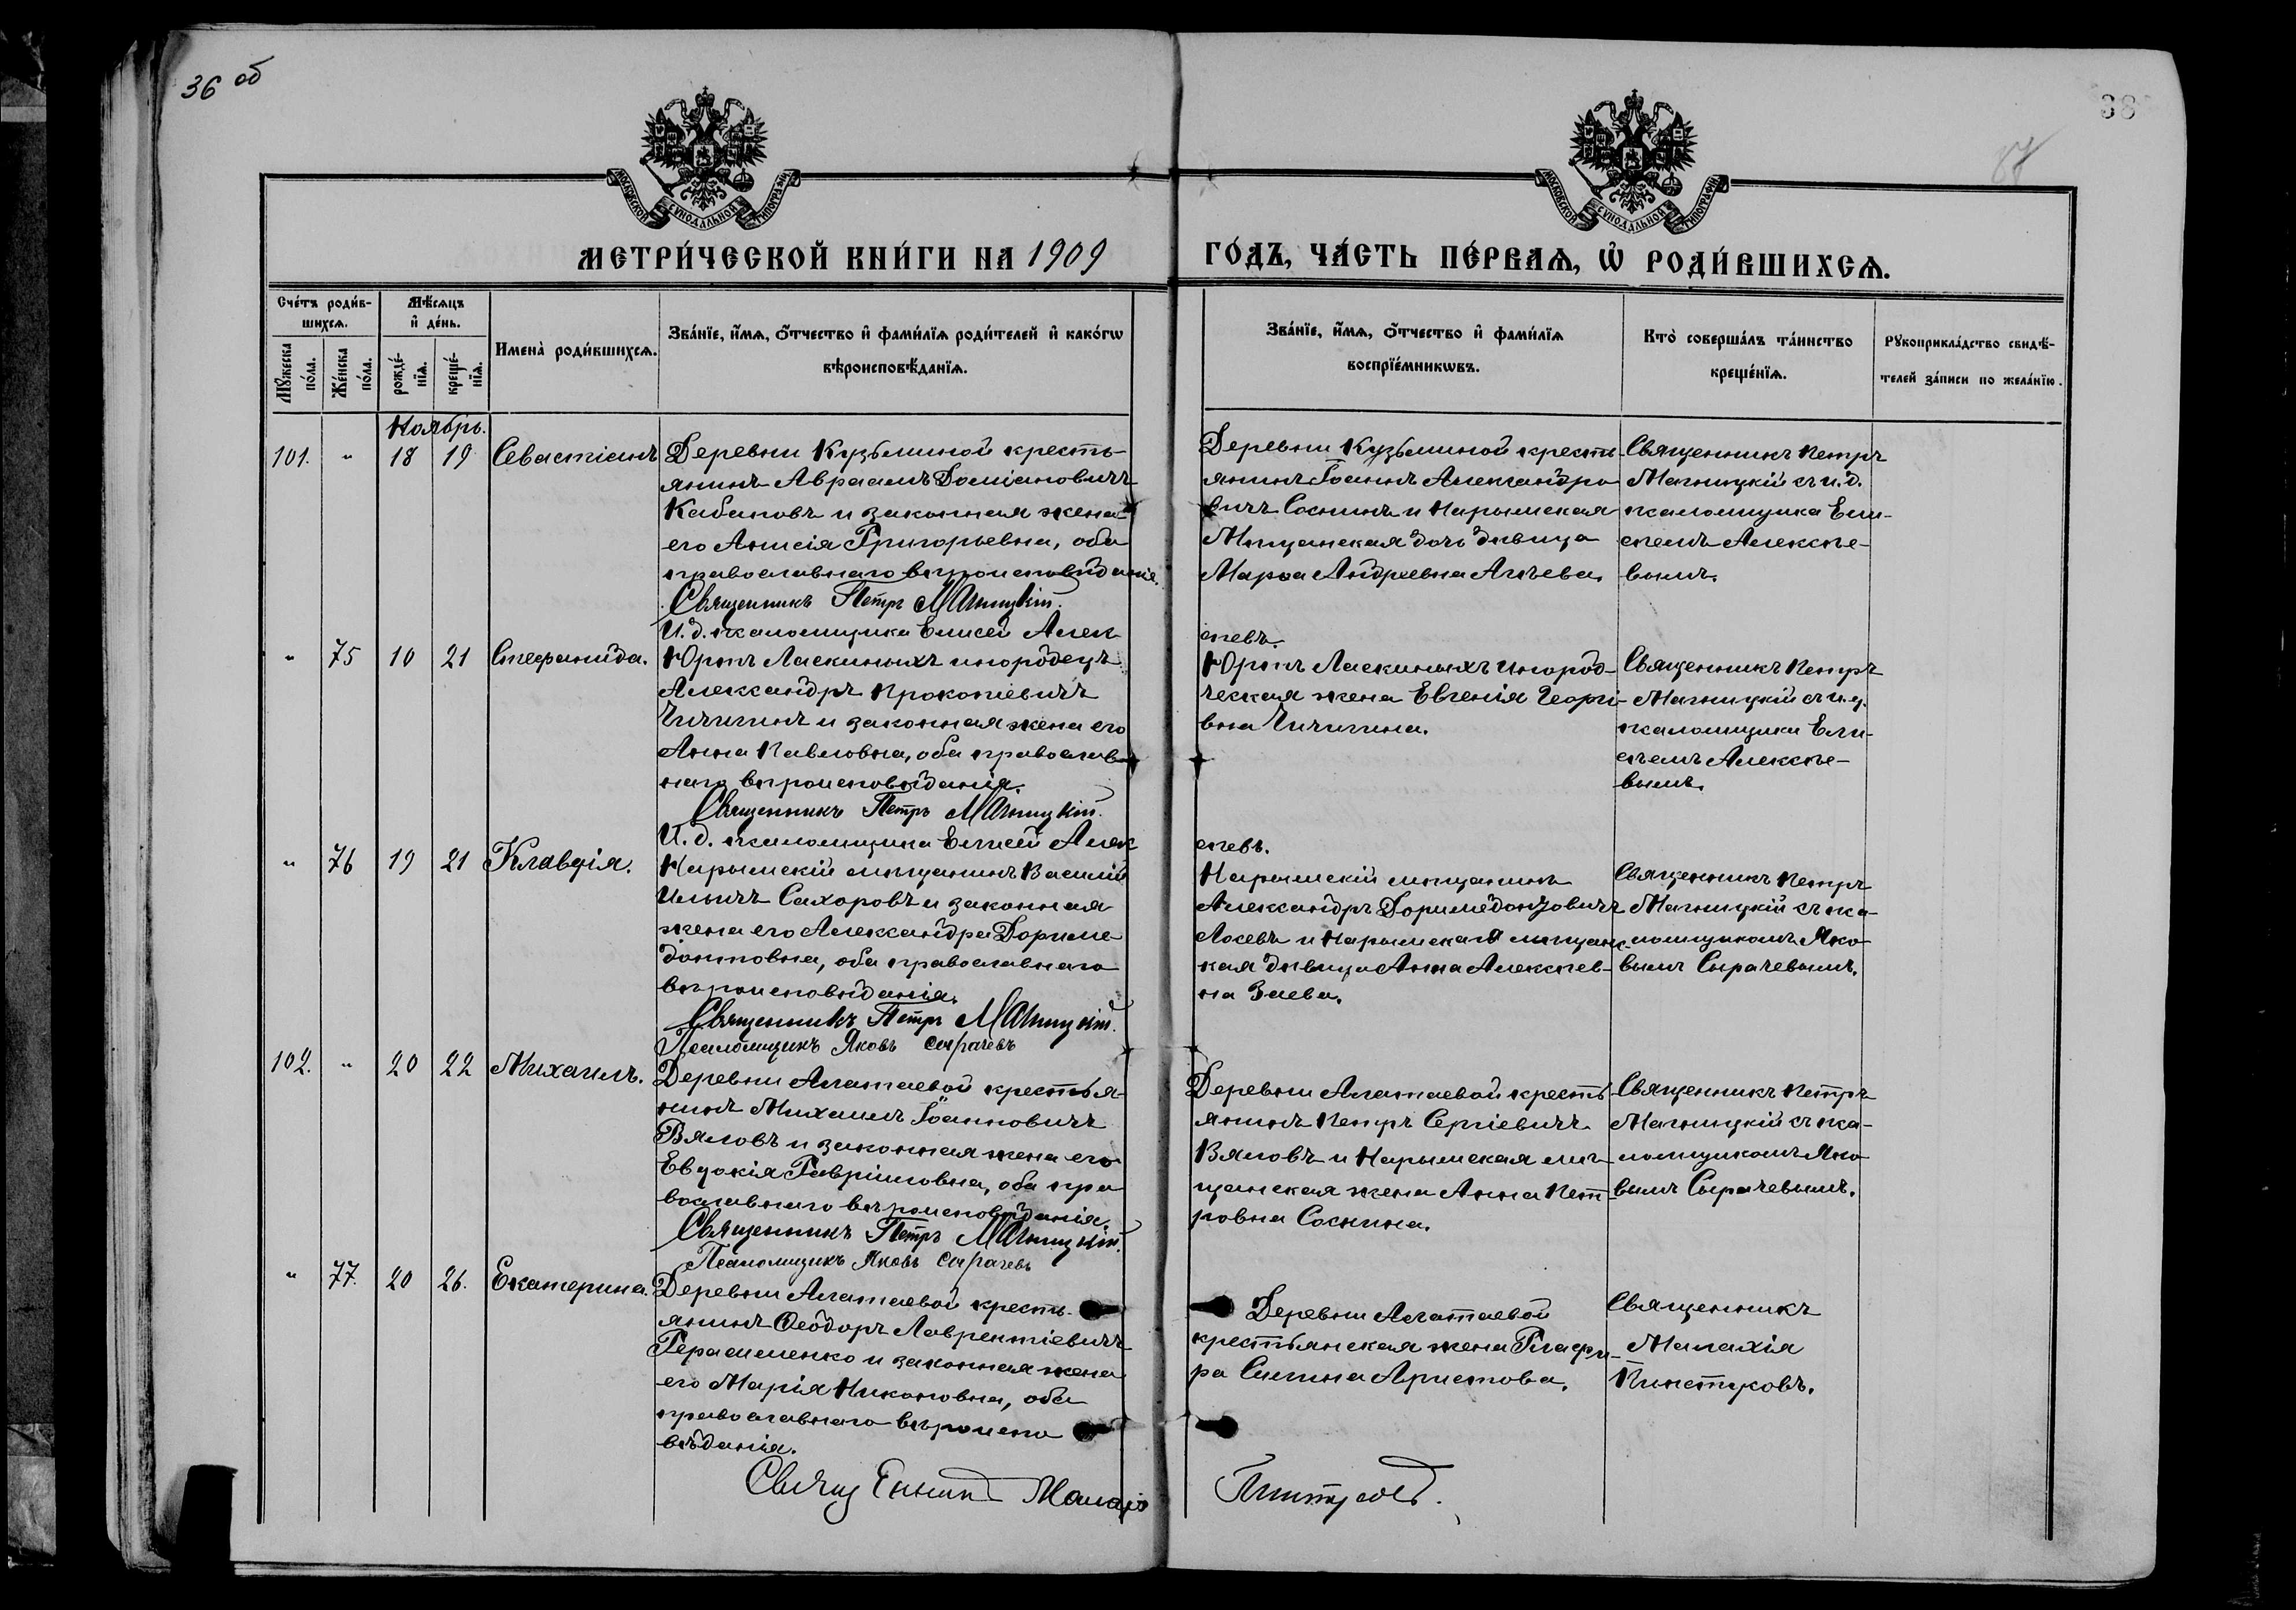 36 об
38
87
МОСКОВСКОЙ СУНОДАЛЬНОЙ ТИПОГРАФІИ
МОСКОВСКОЙ СУНОДАЛЬНОЙ ТИПОГРАФІИ
МЕТРИ́ЧЕСКОЙ КНИ́ГИ НА 1909
ГО́ДЪ, ЧА́СТЬ ПЕ́РВАѦ, Ѡ҆ РОДИ́ВШИХСѦ.
Сче́тъ роди́в-
шихсѧ.
Мѣ́сѧцъ
и҆ де́нь.
Мꙋ́жеска по́ла.
Же́нска по́ла.
рожде́-нїѧ.
креще́-нїѧ.
Имена̀ роди́вшихсѧ.
Зва́нїе, и҆́мѧ, ѻ҆́тчество и҆ фами́лїѧ роди́телей и҆ како́гѡ
вѣроисповѣ́данїѧ.
Зва́нїе, и҆́мѧ, ѻ҆́тчество и҆ фами́лїѧ
воспрїе́мникѡвъ.
Кто̀ соверша́лъ та́инство
креще́нїѧ.
Рꙋкоприкла́дство свидѣ́-
телей за́писи по жела́нїю.
Ноябрь.
101. " 18 19 Севастіанъ
Деревни Кузьминой кресть-
янинъ Авраамъ Доміановичъ
Кабановъ и законная жена
его Анисія Григорьевна, оба
православнаго вѣроисповѣданія.
Священникъ Петръ Магницкій.
И. д. псаломщика Елисей Алек
сѣевъ.
Деревни Кузьминой кресть-
янинъ Іоаннъ Александро
вичъ Соснинъ и Нарымская
Мѣщанская дочь дѣвица
Марѳа Андреевна
Священникъ Петръ
Магницкій съ и. д.
псаломщика Ели-
сеемъ Алексѣе-
вымъ.
" 75 10 21 Стефанида.
Юртъ Ласкиныхъ инородецъ
Александръ Прокопіевичъ
Чичигинъ и законная жена его
Анна Павловна, оба православ
наго вѣроисповѣданія.
Священникъ Петръ Магницкій.
И. д. псаломщика Елисей Алек
сѣевъ.
Юртъ Ласкиныхъ инород-
ческая жена Евгенія Георгі-
вна Чичигина.
Священникъ Петръ
Магницкій съ и. д.
псаломщика Ели-
сѣемъ Алексѣе-
вымъ.
" 76 19 21 Клавдія.
Нарымскій мѣщанинъ Василій
Ильичъ Сахоровъ и законная
жена его Александра Дориме
донтовна, оба православнаго
вѣроисповѣданія.
Священникъ Петръ Магницкій.
Псаломщикъ Яковъ Сырачевъ
Нарымскій мѣщанинъ
Александръ Доримедонтовичъ
Лосевъ и Нарымская мѣщанс-
кая дѣвица Анна Алексѣев-
на Заева.
Священникъ Петръ
Магницкій съ пса-
ломщикомъ Яко
вымъ Сырачевымъ.
102. " 20 22 Михаилъ.
Деревни Алатаевой крестья-
нинъ Михаилъ Іоанновичъ
Вяловъ и законная жена его
Евдокія Гавріиловна, оба пра
вославнаго вѣроисповѣданія.
Священникъ Петръ Магницкій.
Псаломщикъ Яковъ Сырачевъ
Деревни Алатаевой кресть
янинъ Петръ Сергіевичъ
Вяловъ и Нарымская мѣ-
щанская жена Анна Пет
ровна Соснина.
Священникъ Петръ
Магницкій съ пса-
ломщикомъ Яко
вымъ Сырачевымъ.
" 77. 20 26. Екатерина.
Деревни Алатаевой кресть-
янинъ Ѳеодоръ Лаврентіевичъ
Герасименко и законная жена
его Марія Никоновна, оба
православнаго вѣроиспо
вѣданія.
Священникъ Малахія
Деревни Алатаевой
крестьянская жена Глафи-
ра Аристова.
Священникъ
Малахія